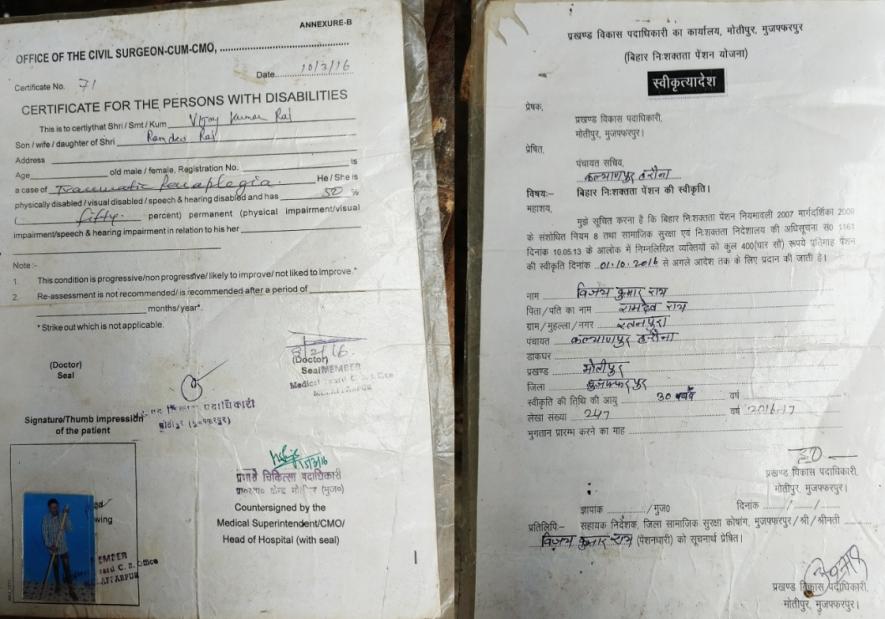 ANNEXURE-B
OFFICE OF THE CIVIL SURGEON-CUM-CMO, ........................................
Certificate No. 71
Date 10/3/16
CERTIFICATE FOR THE PERSONS WITH DISABILITIES
This is to certiythat Shri / Smt / Kum Vijay Kumar Rai
Son / wife / daughter of Shri Ramdev Rai
Address
Age old male / female, Registration No. is
a case of Traumatic Paraplegia. He / She is
physically disabled / visual disabled / speech & hearing disabled and has 50 %
( fifty. percent) permanent (physical impairment/visual
impairment/speech & hearing impairment in relation to his her
Note :-
1. This condition is progressive/non progressive/ likely to improve / not liked to improve.*
2. Re-assessment is not recommended/ is recommended after a period of
months/year*.
* Strike out which is not applicable.
(Doctor)
Seal
(Doctor)
Seal MEMBER
Medical Board C. S. Office
Signature/Thumb impression
of the patient
प्रभारी चिकित्सा पदाधिकारी
Countersigned by the
Medical Superintendent/CMO/
Head of Hospital (with seal)
MEMBER
C. S. Office
प्रखण्ड विकास पदाधिकारी का कार्यालय, मोतीपुर, मुजफ्फरपुर
(बिहार निःशक्तता पेंशन योजना)
स्वीकृत्यादेश
प्रेषक,
प्रखण्ड विकास पदाधिकारी,
मोतीपुर, मुजफ्फरपुर।
प्रेषित,
पंचायत सचिव,
कल्याणपुर हरौना
विषयः- बिहार निःशक्तता पेंशन की स्वीकृति।
महाशय,
मुझे सूचित करना है कि बिहार निःशक्तता पेंशन नियमावली 2007 मार्गदर्शिका 2009
के संशोधित नियम 8 तथा सामाजिक सुरक्षा एवं निःशक्तता निदेशालय की अधिसूचना स0 1161
दिनांक 10.05.13 के आलोक में निम्नलिखित व्यक्तियों को कुल 400(चार सौ) रूपये प्रतिमाह पेंशन
की स्वीकृति दिनांक 01.10.2016 से अगले आदेश तक के लिए प्रदान की जाती है।
नाम विजय कुमार राय
पिता/पति का नाम रामदेव राय
ग्राम/मुहल्ला/नगर रतनपुरा
पंचायत कल्याणपुर हरौना
डाकघर
प्रखण्ड मोतीपुर
जिला मुजफ्फरपुर
स्वीकृति की तिथि की आयु 30 वर्ष वर्ष
लेखा संख्या 247 वर्ष 2016-17
भुगतान प्रारम्भ करने का माह
प्रखण्ड विकास पदाधिकारी,
मोतीपुर, मुजफ्फरपुर।
ज्ञापांक /मुज0 दिनांक / /
प्रतिलिपि:- सहायक निदेशक, जिला सामाजिक सुरक्षा कोषांग, मुजफ्फरपुर/श्री/श्रीमती
विजय कुमार राय (पेंशनधारी) को सूचनार्थ प्रेषित।
प्रखण्ड विकास पदाधिकारी,
मोतीपुर, मुजफ्फरपुर।